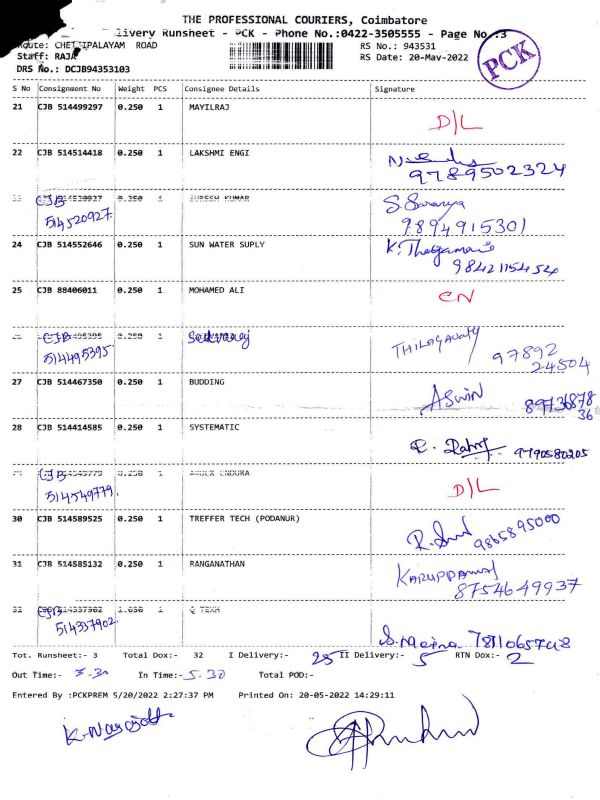 THE PROFESSIONAL COURIERS, Coimbatore
Delivery Runsheet - PCK - Phone No.:0422-3505555 - Page No.:3
Route: CHETTIPALAYAM ROAD RS No.: 943531
Staff: RAJA RS Date: 20-May-2022
PCK
DRS No.: DCJB94353103
S No Consignment No Weight PCS Consignee Details Signature
21 CJB 514499297 0.250 1 MAYILRAJ D/L
22 CJB 514514418 0.250 1 LAKSHMI ENGI
9789502324
CJB 0.250 1 SURESH KUMAR S. Saranya
514520927. 9894915301
24 CJB 514552646 0.250 1 SUN WATER SUPLY K. Thegamani
9842115454
25 CJB 88406011 0.250 1 MOHAMED ALI CN
CJB 0.250 1 Selvaraj THILAGAVATY 97892
514495395. 24504
27 CJB 514467350 0.250 1 BUDDING ASWIN 89736878
36
28 CJB 514414585 0.250 1 SYSTEMATIC 9790580205
CJB 0.250 1 ENDURA D/L
514549779.
30 CJB 514589525 0.250 1 TREFFER TECH (PODANUR) 9865895000
31 CJB 514585132 0.250 1 RANGANATHAN KARUPPAMMAL
8754649937
32 CJB 1 Q TEXH
514357902.
Tot. Runsheet:- 3 Total Dox:- 32 I Delivery:- 25 II Delivery:- 5 RTN Dox:- 2
Out Time:- 3.30 In Time:- 5.30 Total POD:-
Entered By :PCKPREM 5/20/2022 2:27:37 PM Printed On: 20-05-2022 14:29:11